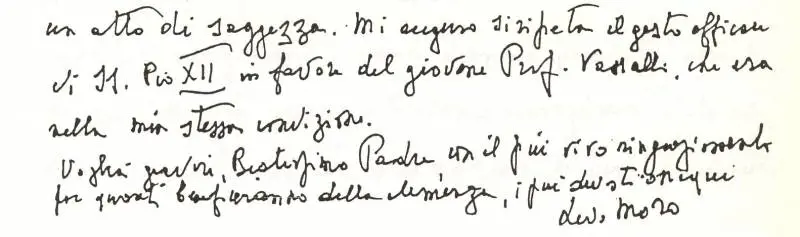 un atto di saggezza. Mi auguro si ripeta il gesto efficace
di SS. Pio XII in favore del giovane Prof. Vassalli, che era
nella mia stessa condizione.
Voglia gradire, Beatissimo Padre, con il più vivo ringraziamento
per quanti beneficeranno della clemenza, i più devoti ossequi
dev. Moro